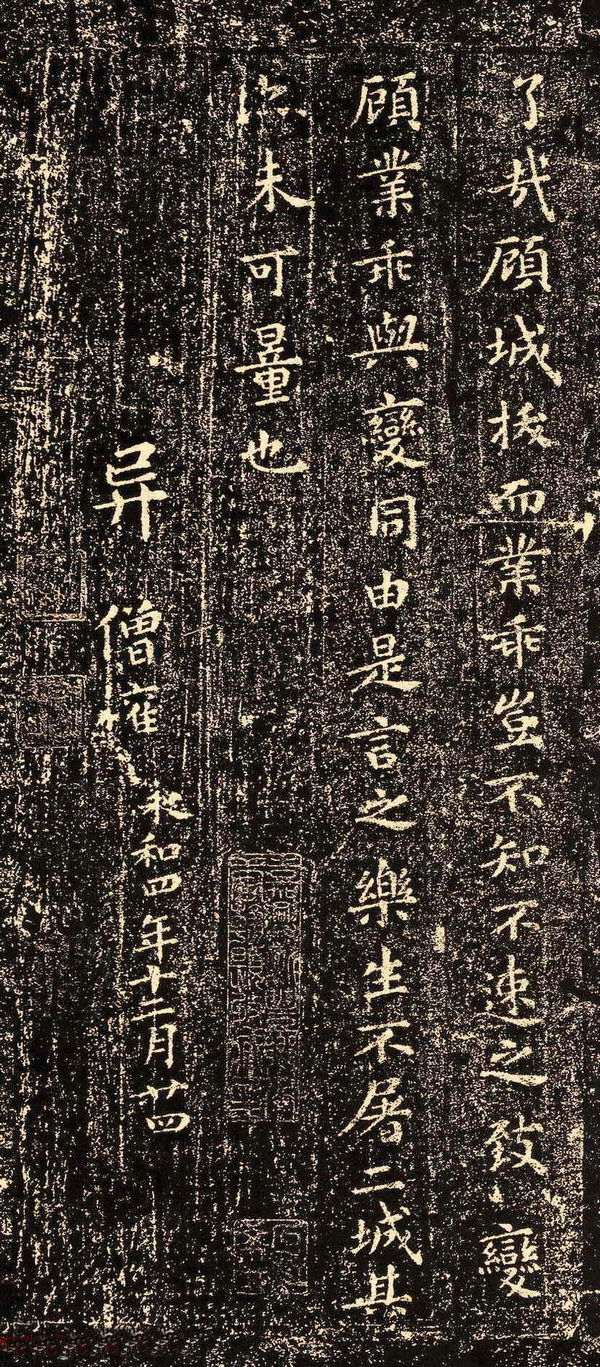 了哉顧城拔而業乖豈不知不速之致變
顧業乖與變同由是言之樂生不屠二城其
亦未可量也
异 僧權
永和四年十二月廿四